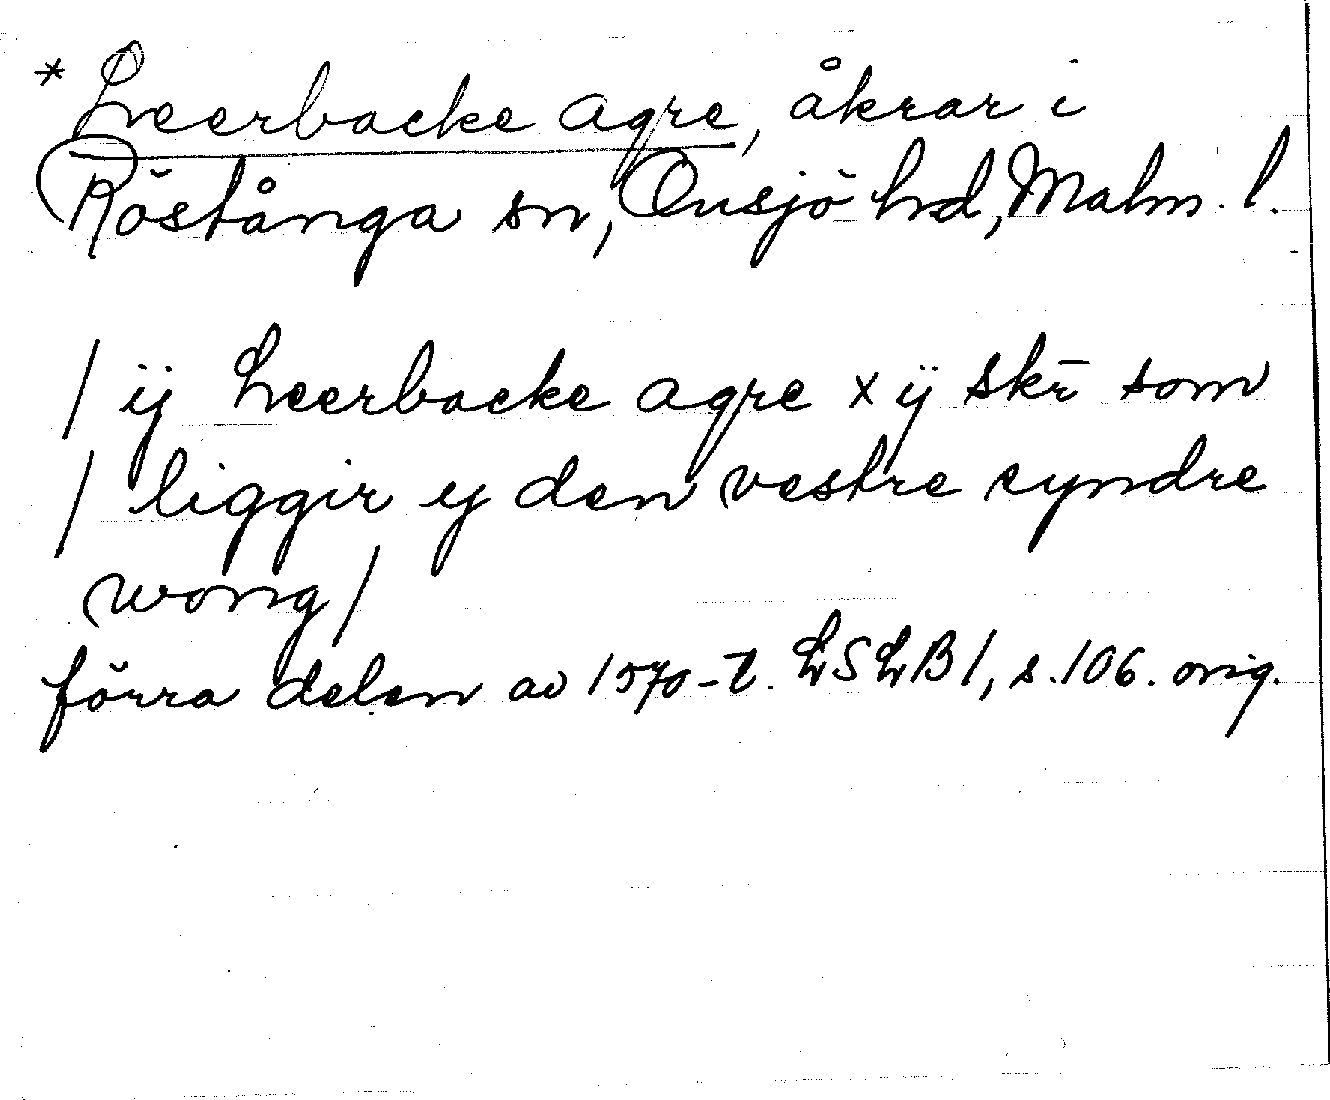 * Leerbacke agre, åkrar i
Röstånga sn, Onsjö hd, Malm. l.
/ ij Leerbacke agre x ij skr̄ som
/ liggir ij den vestre syndre
wong /
förra delen av 1570-t. LSLB 1, s. 106. orig.